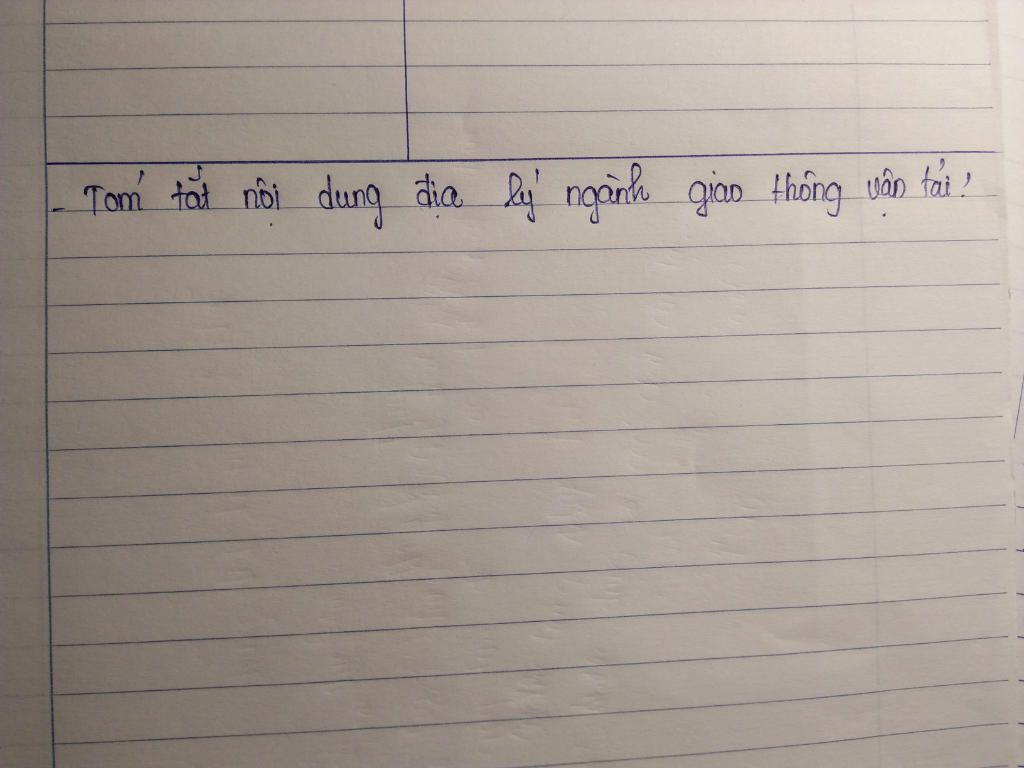 - Tóm tắt nội dung địa lý ngành giao thông vận tải!